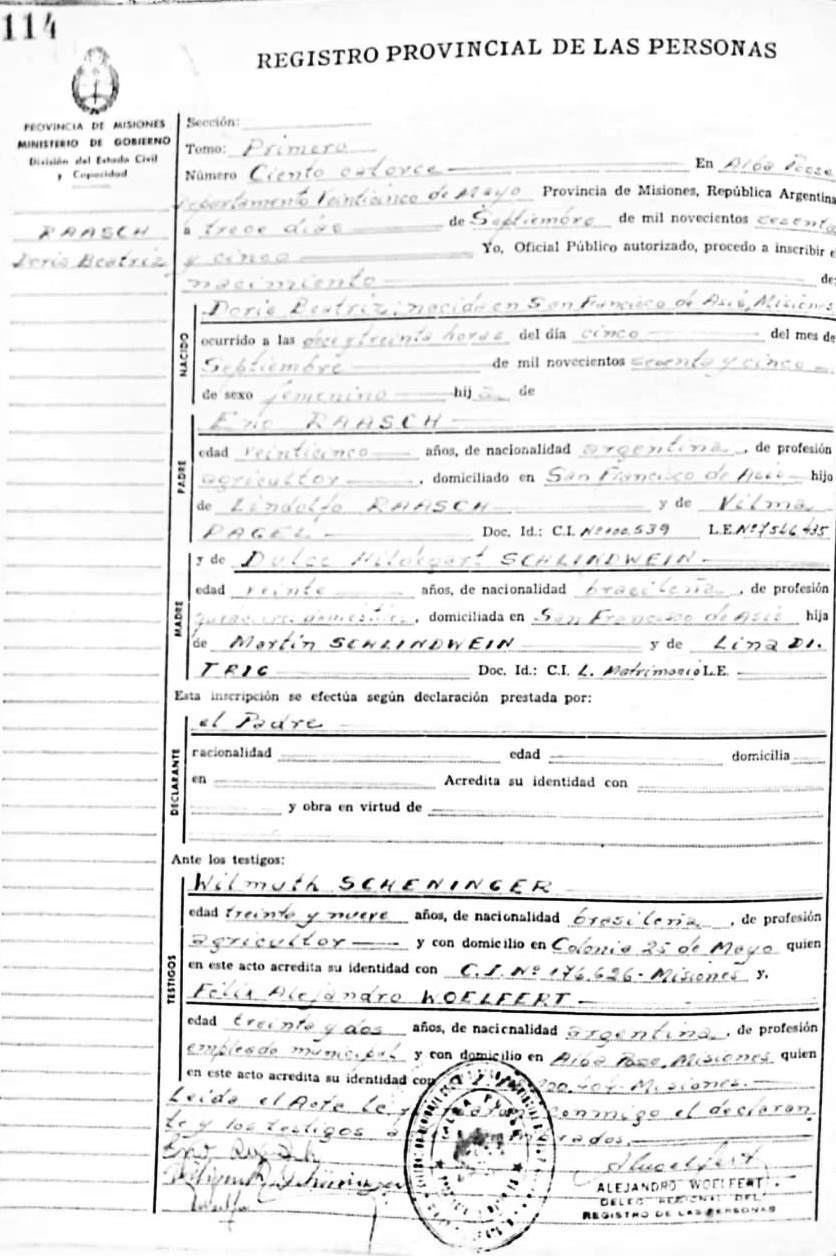 114
REGISTRO PROVINCIAL DE LAS PERSONAS
PROVINCIA DE MISIONES
MINISTERIO DE GOBIERNO
División del Estado Civil
y Capacidad
RAASCH
Doris Beatriz
Sección:
Tomo: Primero
Número Ciento catorce En Alba Posse
departamento Veinticinco de Mayo Provincia de Misiones, República Argentina
a trece días de Septiembre de mil novecientos sesenta
y cinco Yo, Oficial Público autorizado, procedo a inscribir e
nacimiento de:
NACIDO
Doris Beatriz; nacida en San Francisco de Asís, Misiones
ocurrido a las once y treinta horas del día cinco del mes de
Septiembre de mil novecientos sesenta y cinco
de sexo femenino hija de
RAASCH
PADRE
edad veinticinco años, de nacionalidad argentina, de profesión
agricultor, domiciliado en San Francisco de Asís hijo
de Lindolfo RAASCH y de Vilma
PAGEL Doc. Id.: C.I. L.E. Nº 7546435
y de Dulce Hildegart SCHLINDWEIN
MADRE
edad veinte años, de nacionalidad brasileña, de profesión
domiciliada en San Francisco de Asís hija
de Martín SCHLINDWEIN y de Lina DI.
TRIG Doc. Id.: C.I. L. Matrimonio L.E.
Esta inscripción se efectúa según declaración prestada por:
el Padre
DECLARANTE
nacionalidad edad domicilia
en Acredita su identidad con
y obra en virtud de
Ante los testigos:
TESTIGOS
Wilmuth SCHENINGER
edad treinta y nueve años, de nacionalidad brasileña, de profesión
agricultor y con domicilio en Colonia 25 de Mayo quien
en este acto acredita su identidad con C.I. Nº 176.626- Misiones y,
Félix Alejandro WOELFERT
edad treinta y dos años, de nacionalidad argentina, de profesión
empleado municipal y con domicilio en Alba Posse, Misiones quien
en este acto acredita su identidad con Misiones.
Leída el Acta la conmigo el declaran
te y los testigos
ALEJANDRO WOELFERT
DELEG. REGIONAL DEL
REGISTRO DE LAS PERSONAS